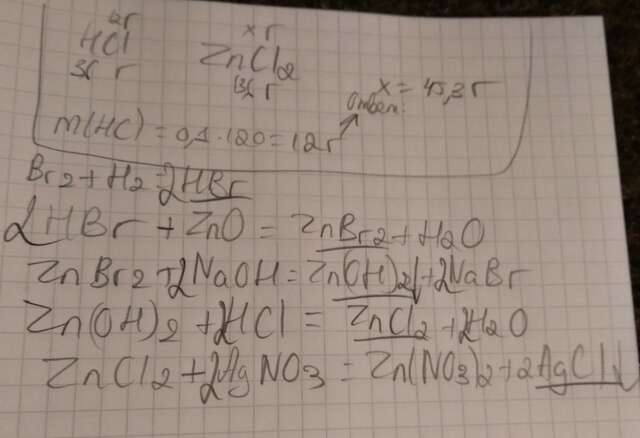 12г x г
HCl ZnCl2
36 г 136 г
x = 45,3 г
Ответ:
m(HC) = 0,1 · 120 = 12г
Br2 + H2 = 2HBr
2HBr + ZnO = ZnBr2 + H2O
ZnBr2 + 2NaOH = Zn(OH)2↓ + 2NaBr
Zn(OH)2 + 2HCl = ZnCl2 + 2H2O
ZnCl2 + 2AgNO3 = Zn(NO3)2 + 2AgCl↓